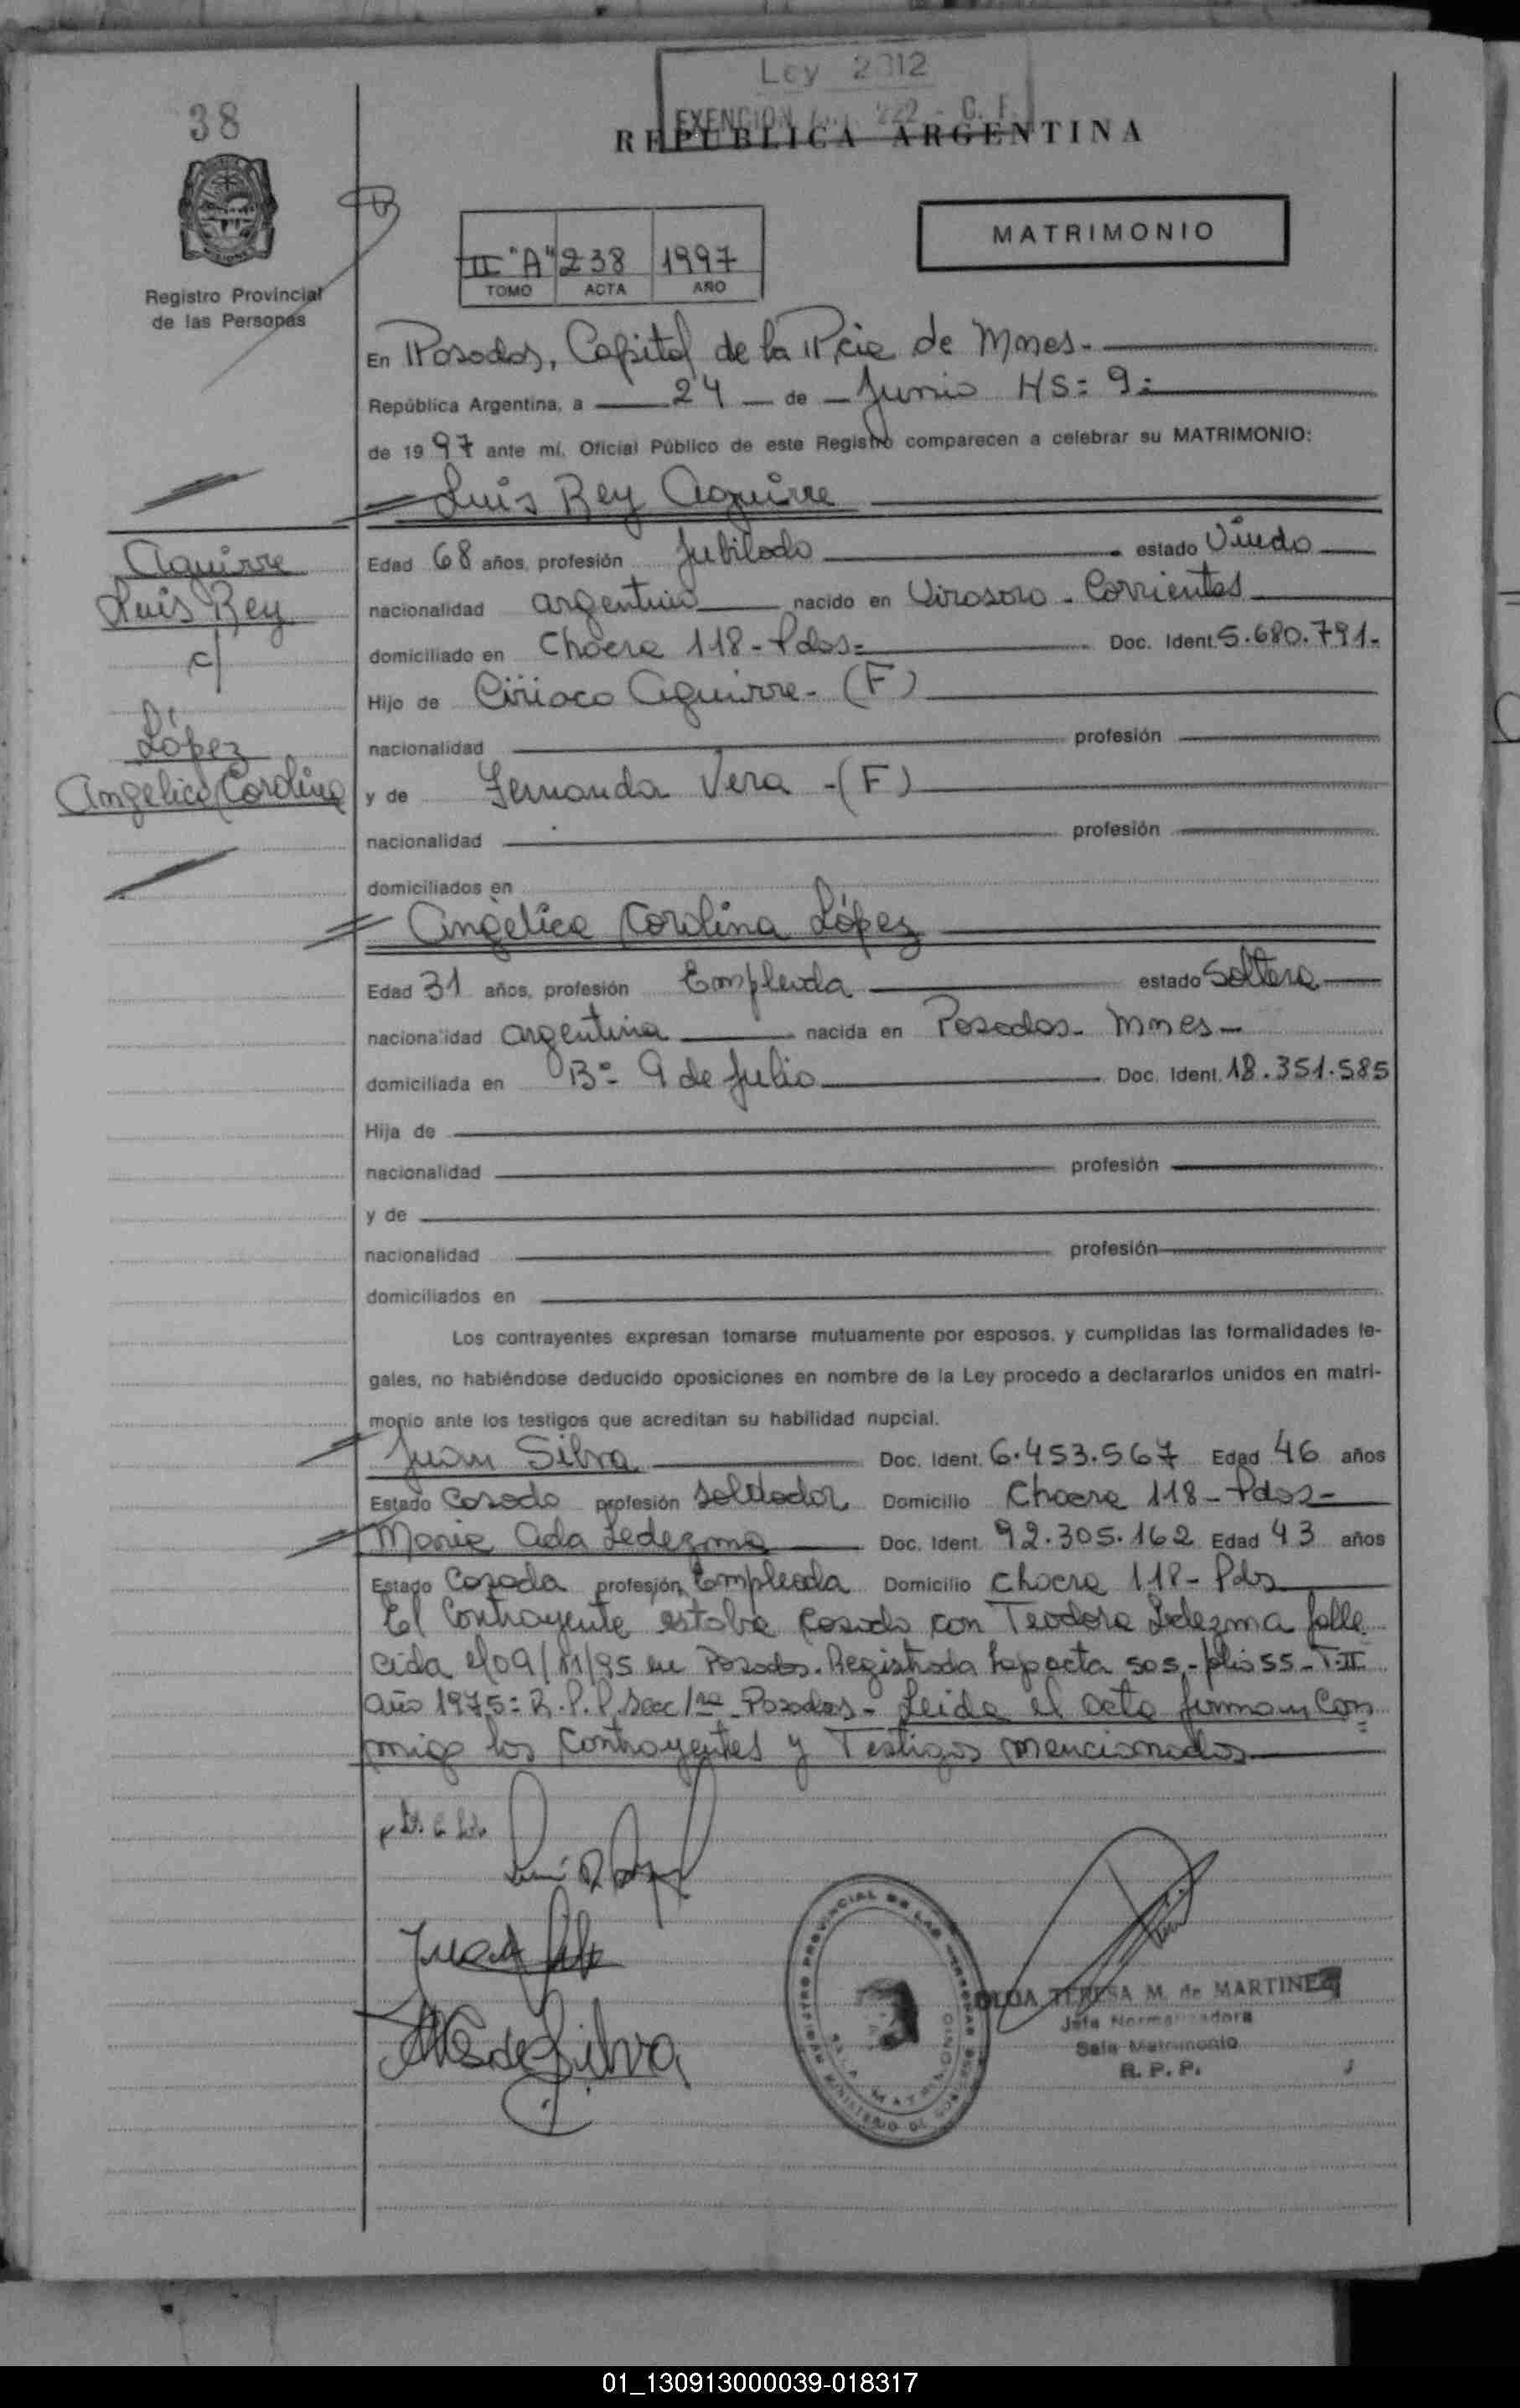 Ley 2312
EXENCION Art. 222 - C. F.
38
REPUBLICA ARGENTINA
MATRIMONIO
II "A" 238 1997
TOMO ACTA AÑO
Registro Provincial
de las Personas
En Posadas, Capital de la Pcia de Mnes.-
República Argentina, a 24 de Junio HS: 9:
de 1997 ante mí, Oficial Público de este Registro comparecen a celebrar su MATRIMONIO:
Luis Rey Aguirre
Aguirre
Luis Rey
c/
López
Angelica Carolina
Edad 68 años, profesión Jubilado estado Viudo
nacionalidad argentino nacido en Virasoro - Corrientes
domiciliado en Chacra 118 - Pdas= Doc. Ident. 5.680.791-
Hijo de Ciriaco Aguirre - (F)
nacionalidad profesión
y de Fernanda Vera - (F)
nacionalidad profesión
domiciliados en
Angélica Carolina López
Edad 31 años, profesión Empleada estado Soltera
nacionalidad argentina nacida en Posadas - Mnes -
domiciliada en B°= 9 de Julio Doc. Ident. 18.351.585
Hija de
nacionalidad profesión
y de
nacionalidad profesión
domiciliados en
Los contrayentes expresan tomarse mutuamente por esposos, y cumplidas las formalidades le-
gales, no habiéndose deducido oposiciones en nombre de la Ley procedo a declararlos unidos en matri-
monio ante los testigos que acreditan su habilidad nupcial.
Juan Silva Doc. Ident. 6.453.567 Edad 46 años
Estado Casado profesión Soldador Domicilio Chacra 118 - Pdas -
Maria Ada Ledezma Doc. Ident. 92.305.162 Edad 43 años
Estado Casada profesión Empleada Domicilio Chacra 118 - Pdas
El Contrayente estaba casado con Teodora Ledezma falle
cida el 09/11/95 en Posadas. Registrada acta 505 - folio 55 - T. II
Año 1975: R.P.P. Secc/1ra - Posadas - Leida el acta firman con
migo los Contrayentes y Testigos mencionados
Juan Silva
de Silva
REGISTRO PROVINCIAL DE LAS PERSONAS
SALA MATRIMONIO
MINISTERIO DE GOBIERNO
TERESA M. de MARTINEZ
Jefe Normalizadora
Sala Matrimonio
R. P. P.
01_130913000039-018317